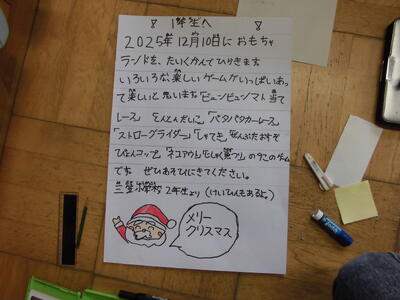 1年生へ
2025年12月10日に おもちゃ
ランドを、たいくかんでひらきます
いろいろな楽しいゲームがいっぱいあっ
て楽しいと思います「ビュンビュンマト当て
レース」 とんとん 「パタパタカーレース」
「ストローグライダー」「しゃてき」
ぴょんコップ」 の9このゲーム
です ぜひあそびにきてください。
2年生より (けいひんもあるよ。)
メリー
クリスマス